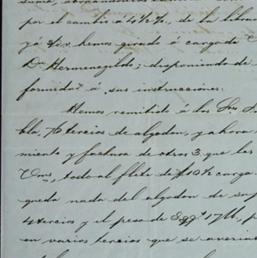 por el cambio á 4½%, de la libran
ya &x hemos girado á cargo de
Dn Hermenegildo; disponiendo de
formidad á sus instrucciones.
Hemos remitido á los Sres
bla, 76 tercios de algodon, y ahora
miento y factura de otros 3 que les
Vms, todo al flete de carga
queda nada del algodon de su
4 tercios y el peso de
en varios tercios que se averia